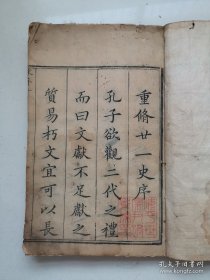 重脩廿一史序
孔子欲觀二代之禮
而曰文獻不足獻之
質易朽文宜可以長